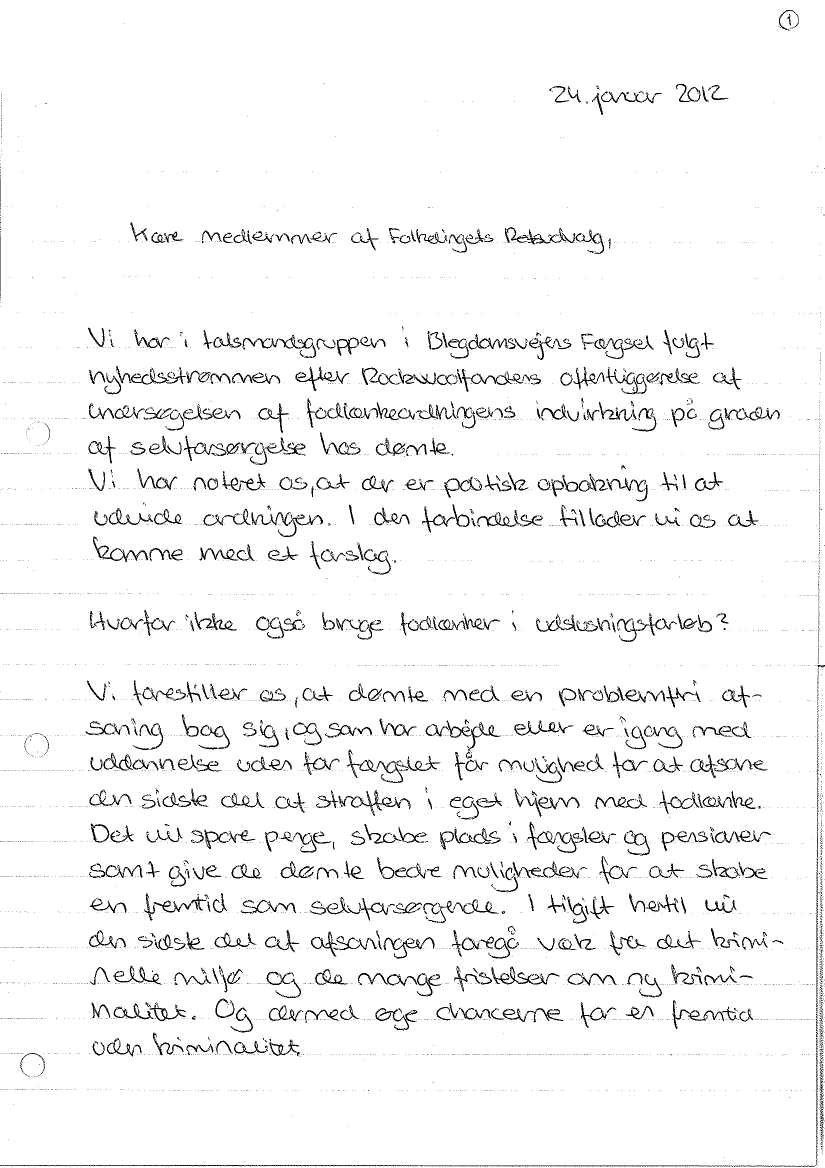 1
24. januar 2012
Kære medlemmer af Folketingets Retsudvalg,
Vi har i talsmandsgruppen i Blegdamsvejens Fængsel fulgt
nyhedsstrømmen efter Rockwoolfondens offentliggørelse af
undersøgelsen af fodlænkeordningens indvirkning på graden
af selvforsørgelse hos dømte.
Vi har noteret os, at der er politisk opbakning til at
udvide ordningen. I den forbindelse tillader vi os at
komme med et forslag.
Hvorfor ikke også bruge fodlænker i udslusningsforløb?
Vi forestiller os, at dømte med en problemfri af-
soning bag sig, og som har arbejde eller er igang med
uddannelse uden for fængslet får mulighed for at afsone
den sidste del af straffen i eget hjem med fodlænke.
Det vil spare penge, skabe plads i fængsler og pensioner
samt give de dømte bedre muligheder for at skabe
en fremtid som selvforsørgende. I tilgift hertil vil
den sidste del af afsoningen foregå væk fra det krimi-
nelle miljø og de mange fristelser om ny krimi-
nalitet. Og dermed øge chancerne for en fremtid
uden kriminalitet.